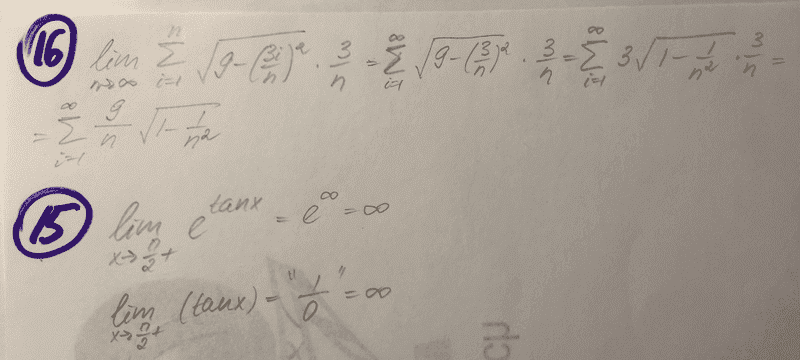 16 lim n→∞ n Σ i=1 √(9-(3i/n)²) · 3/n = ∞ Σ i=1 √(9-(3/n)²) · 3/n = ∞ Σ i=1 3√(1-1/n²) · 3/n =
= ∞ Σ i=1 9/n √(1-1/n²)
15 lim x→π/2+ e^tanx = e^∞ = ∞
lim x→π/2+ (tanx) = "1/0" = ∞